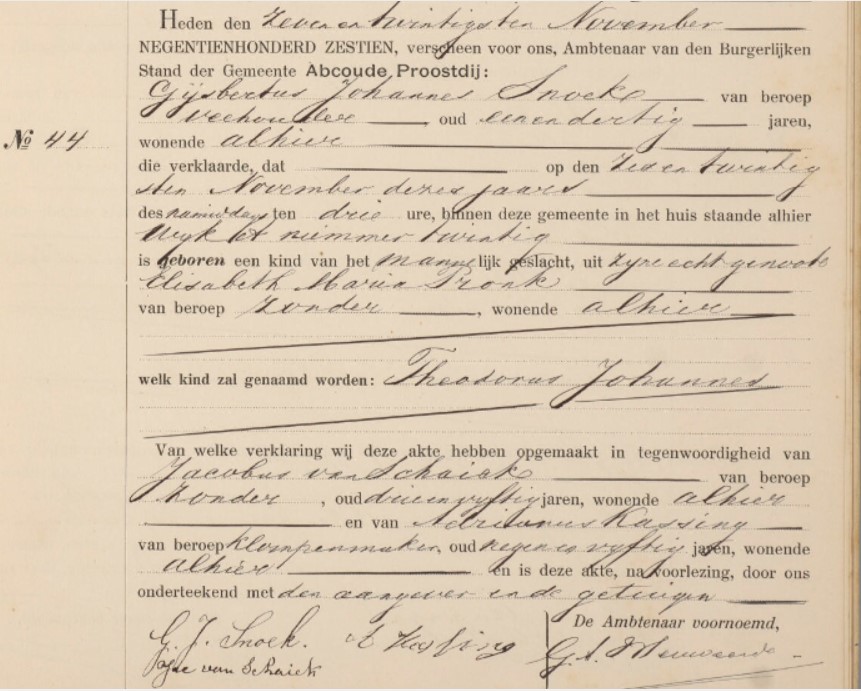 Heden den zeven en twintigsten November
NEGENTIENHONDERD ZESTIEN, verscheen voor ons, Ambtenaar van den Burgerlijken
Stand der Gemeente Abcoude Proostdij:
Gijsbertus Johannes Snoek van beroep
veehouder, oud eenendertig jaren,
Nº 44
wonende alhier
die verklaarde, dat op den zeven twintig
sten November dezes jaars
des namiddags ten drie ure, binnen deze gemeente in het huis staande alhier
Wijk nummer twintig
is geboren een kind van het mannelijk geslacht, uit zijne echtgenoote
Elisabeth Maria Pronk
van beroep zonder, wonende alhier
welk kind zal genaamd worden: Theodorus Johannes
Van welke verklaring wij deze akte hebben opgemaakt in tegenwoordigheid van
Jacobus van Schaick van beroep
zonder, oud drieenvyftig jaren, wonende alhier
en van Adrianus Kassing
van beroep klompenmaker, oud negen en vyftig jaren, wonende
alhier en is deze akte, na voorlezing, door ons
onderteekend met den aangever en de getuigen
De Ambtenaar voornoemd,
G. J. Snoek. A Kassing
Jac van Schaick